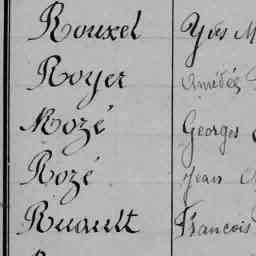 Rouxel Yves M
Royer Amédée
Rozé Georges
Rozé Jean
Ruault Francois